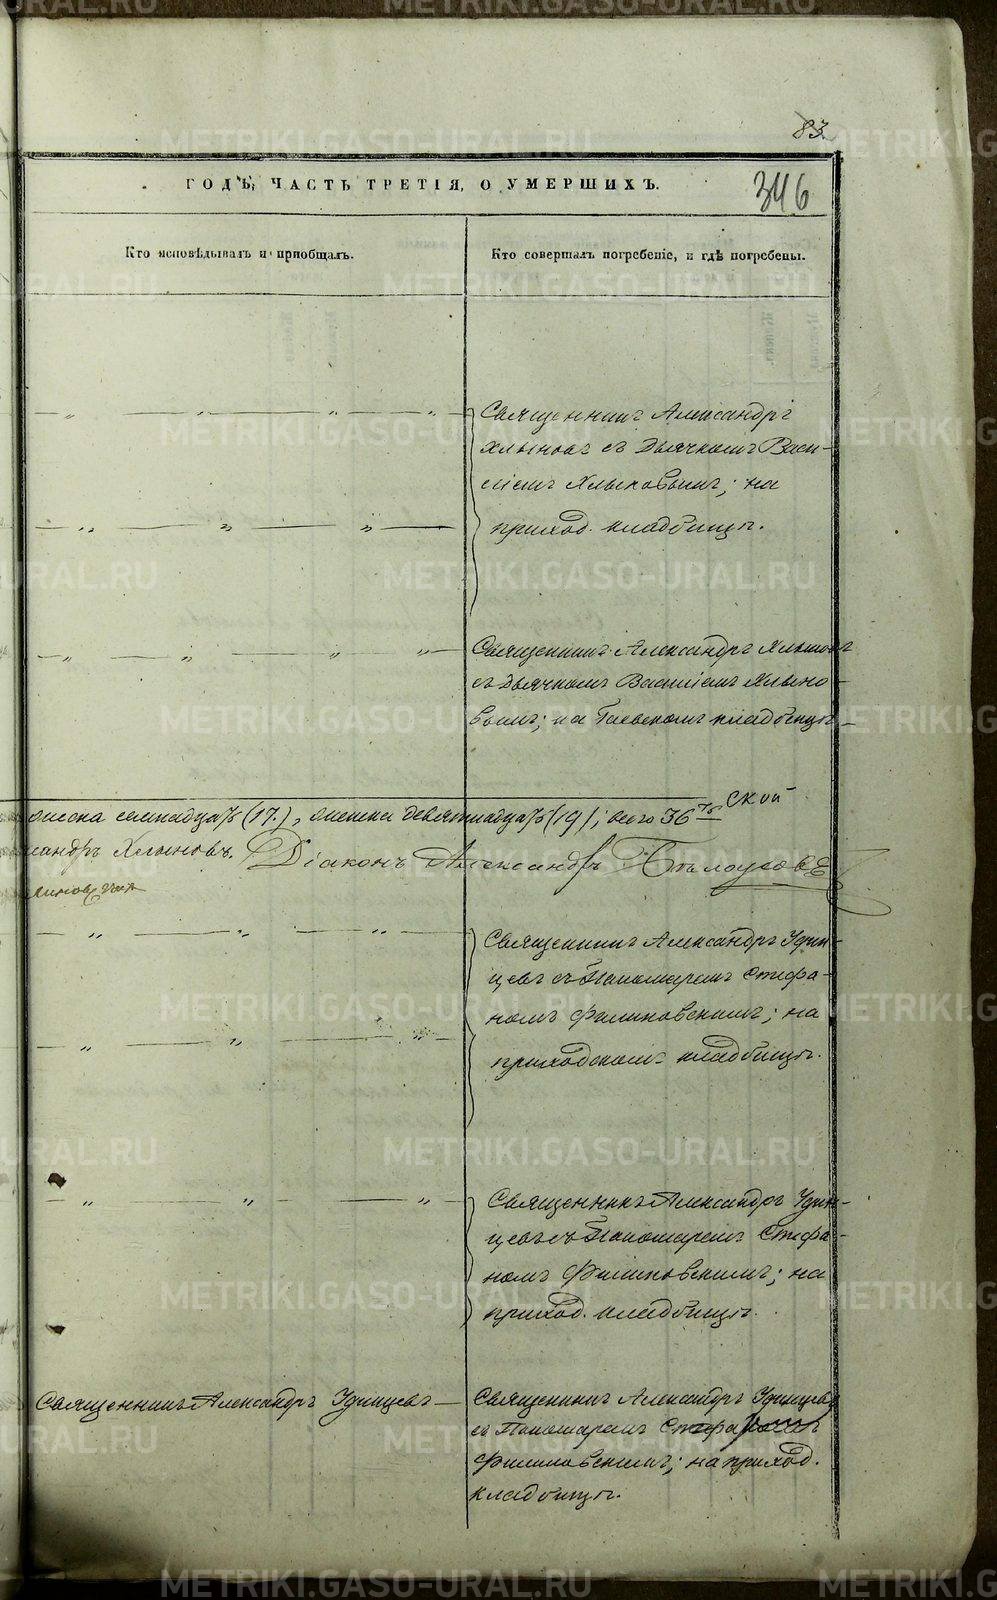 83.
ГОДЪ, ЧАСТЬ ТРЕТІЯ, О УМЕРШИХЪ.
346
Кто исповѣдывалъ и пріобщалъ.
Кто совершалъ погребеніе, и гдѣ погребены.
Священникъ Александръ
Хлыновъ съ Дьячкомъ Васи-
ліемъ Хлыновымъ; на
приход. кладбищѣ.
Священникъ Александръ Хлыновъ
съ Дьячкомъ Василіемъ Хлыно-
вымъ; на кладбищѣ
семнадцать (17.), женска девятнадцать (19); всего 36ть
ской
сандръ Хлыновъ. Діаконъ Александръ Бѣлоусовъ
Священникъ Александръ Удин-
цевъ съ Пономаремъ Стефа-
номъ Филиновскимъ; на
приходскомъ кладбищѣ.
Священникъ Александръ Удин-
цевъ съ Пономаремъ Стефа-
номъ Филиновскимъ; на
приход. кладбищѣ.
Священникъ Александръ Удинцевъ
Священникъ Александръ Удинцевъ
съ Пономаремъ Стефаномъ
Филиновскимъ; на приход.
кладбищѣ.
METRIKI.GASO-URAL.RU